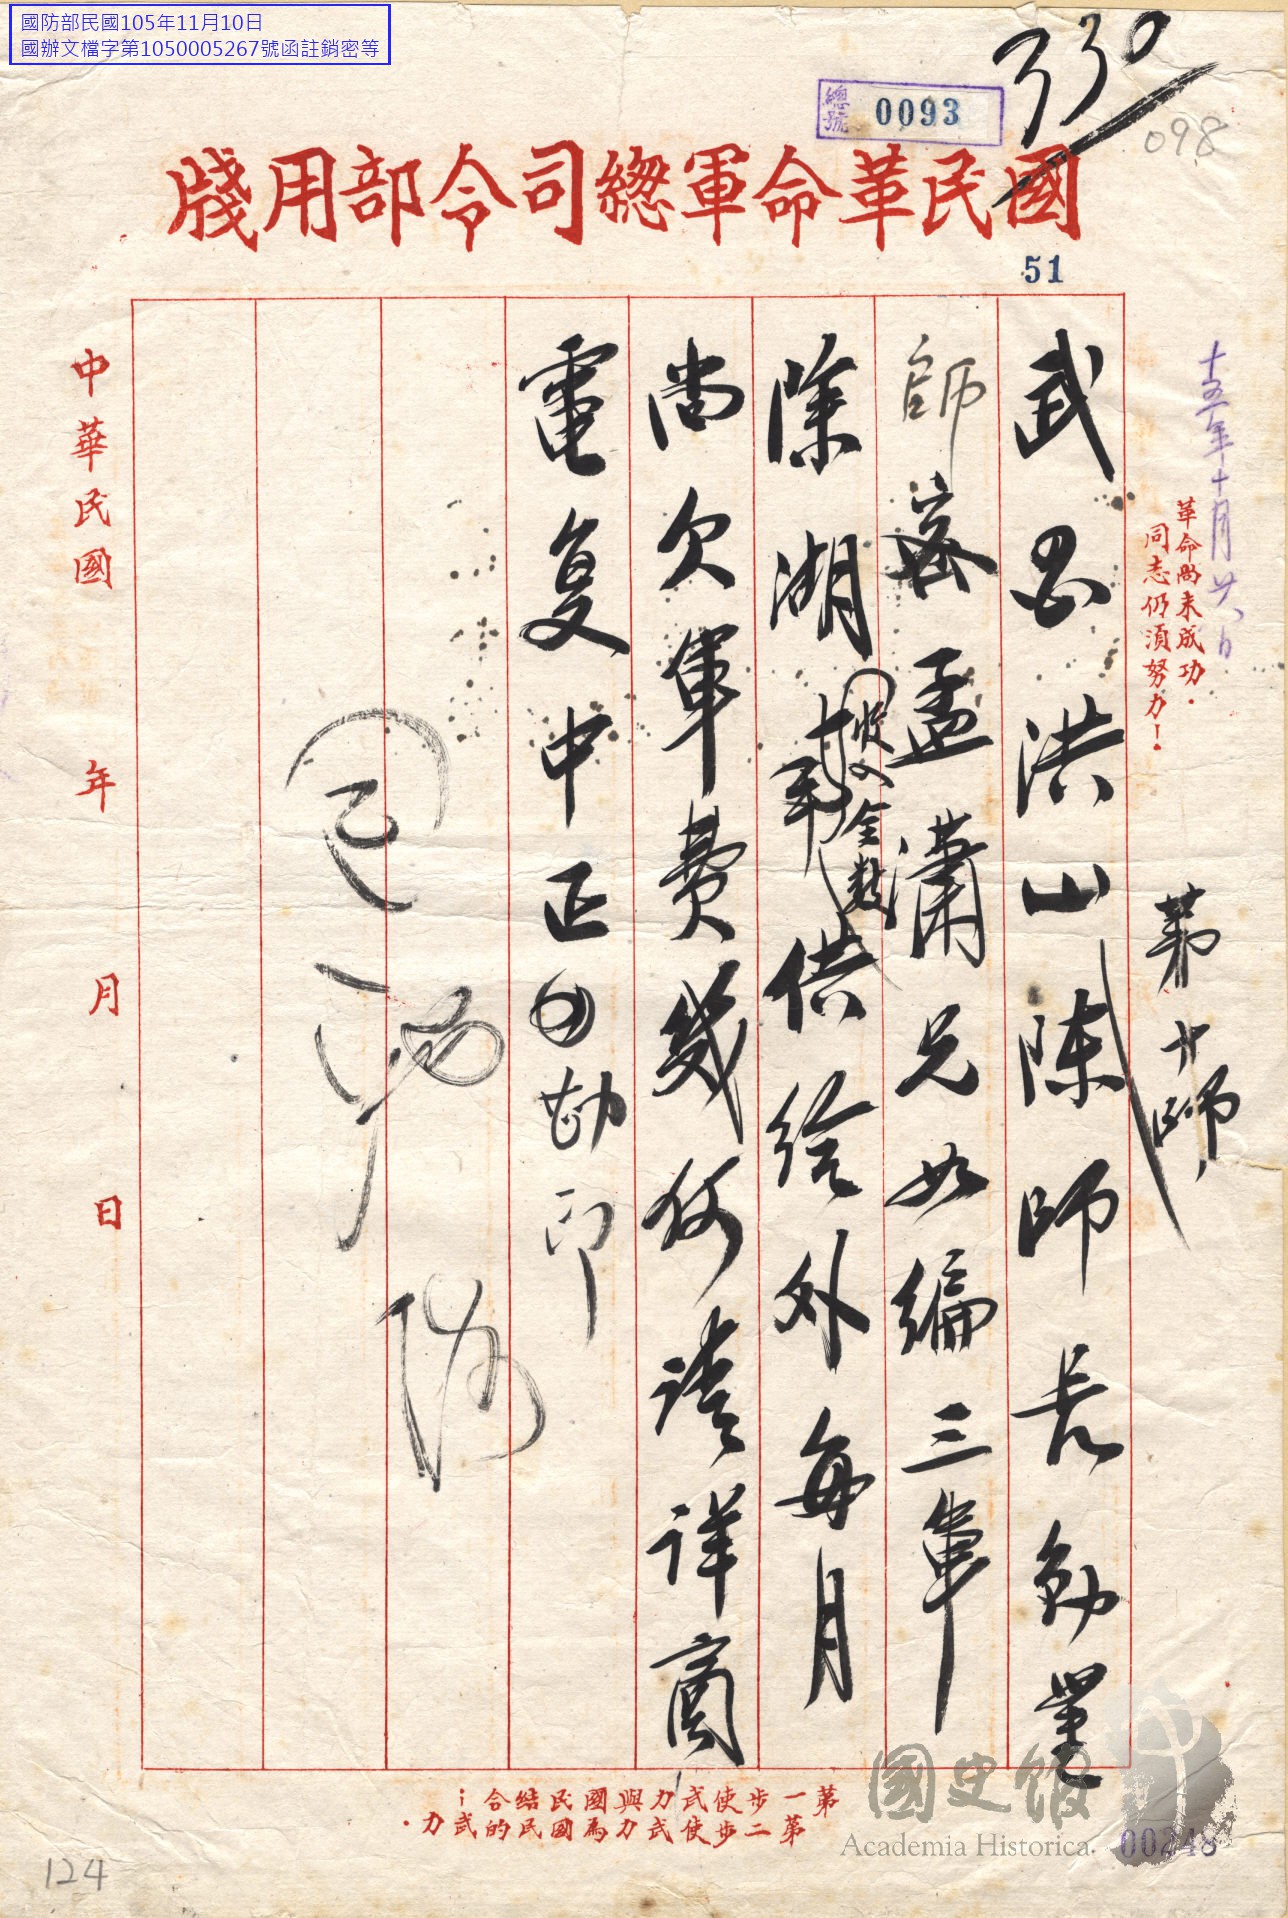 國防部民國105年11月10日
國辦文檔字第1050005267號函註銷密等
330
總號 0093
098
國民革命軍總司令部用牋
51
十五年十月廿八日
革命尚未成功．
同志仍須努力！
第十師
武昌洪山陳師長勛鑒
師密孟瀟兄如編三軍
除湖
收入全數
供給外每月
尚欠軍費幾何請詳商
電复中正勘印
中華民國 年 月 日
第一步使武力與國民結合；
第二步使武力為國民的武力．
國史館
Academia Historica
00248
124